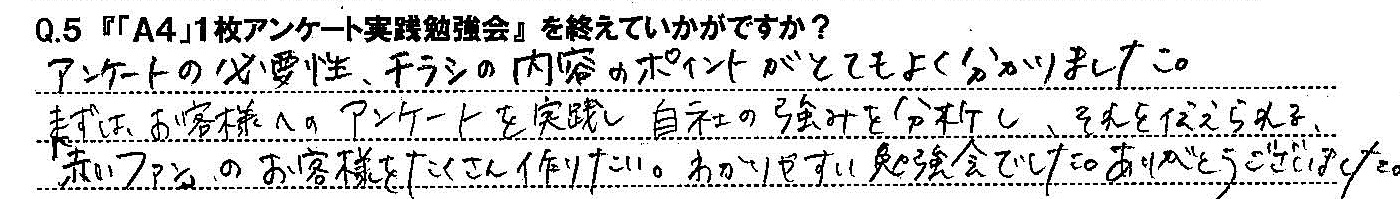 Q.5 『「A4」1枚アンケート実践勉強会』を終えていかがですか？
アンケートの必要性、チラシの内容のポイントがとてもよく分かりました。
まずは、お客様へのアンケートを実践し自社の強みを分析し、それを伝えられる、
赤いファンのお客様をたくさん作りたい。わかりやすい勉強会でした。ありがとうございました。